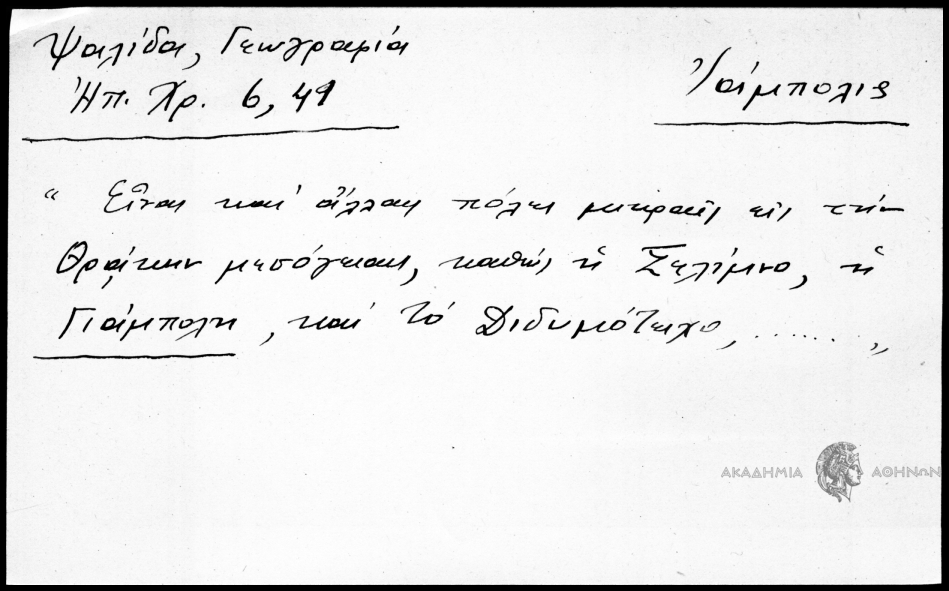 Ψαλίδα, Γεωγραφία
Ἠπ. Χρ. 6, 49
Ἰάμπολις
“ Εἶναι καὶ ἄλλαι πόλεις μικραὶ εἰς τὴν
Θράκην μεσόγειαι, καθὼς ἡ Σελίμνο, ἡ
Γιάμπολη, καὶ τὸ Διδυμότειχο, ...... „
ΑΚΑΔΗΜΙΑ ΑΘΗΝΩΝ